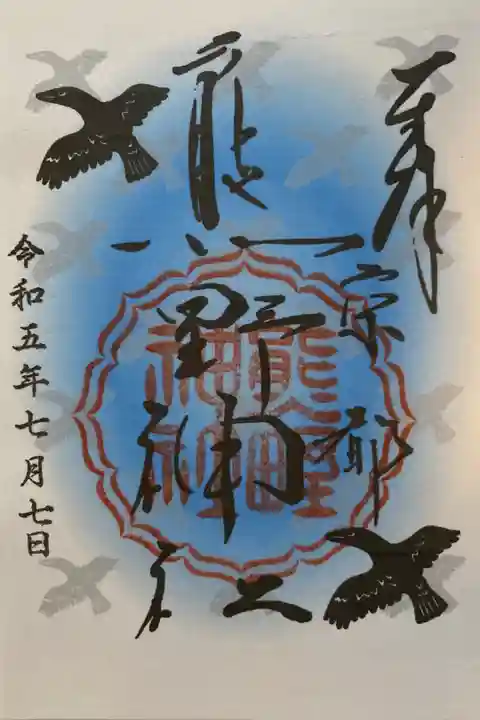 奉拝
京都
熊野神社
熊野
神社
令和五年七月七日